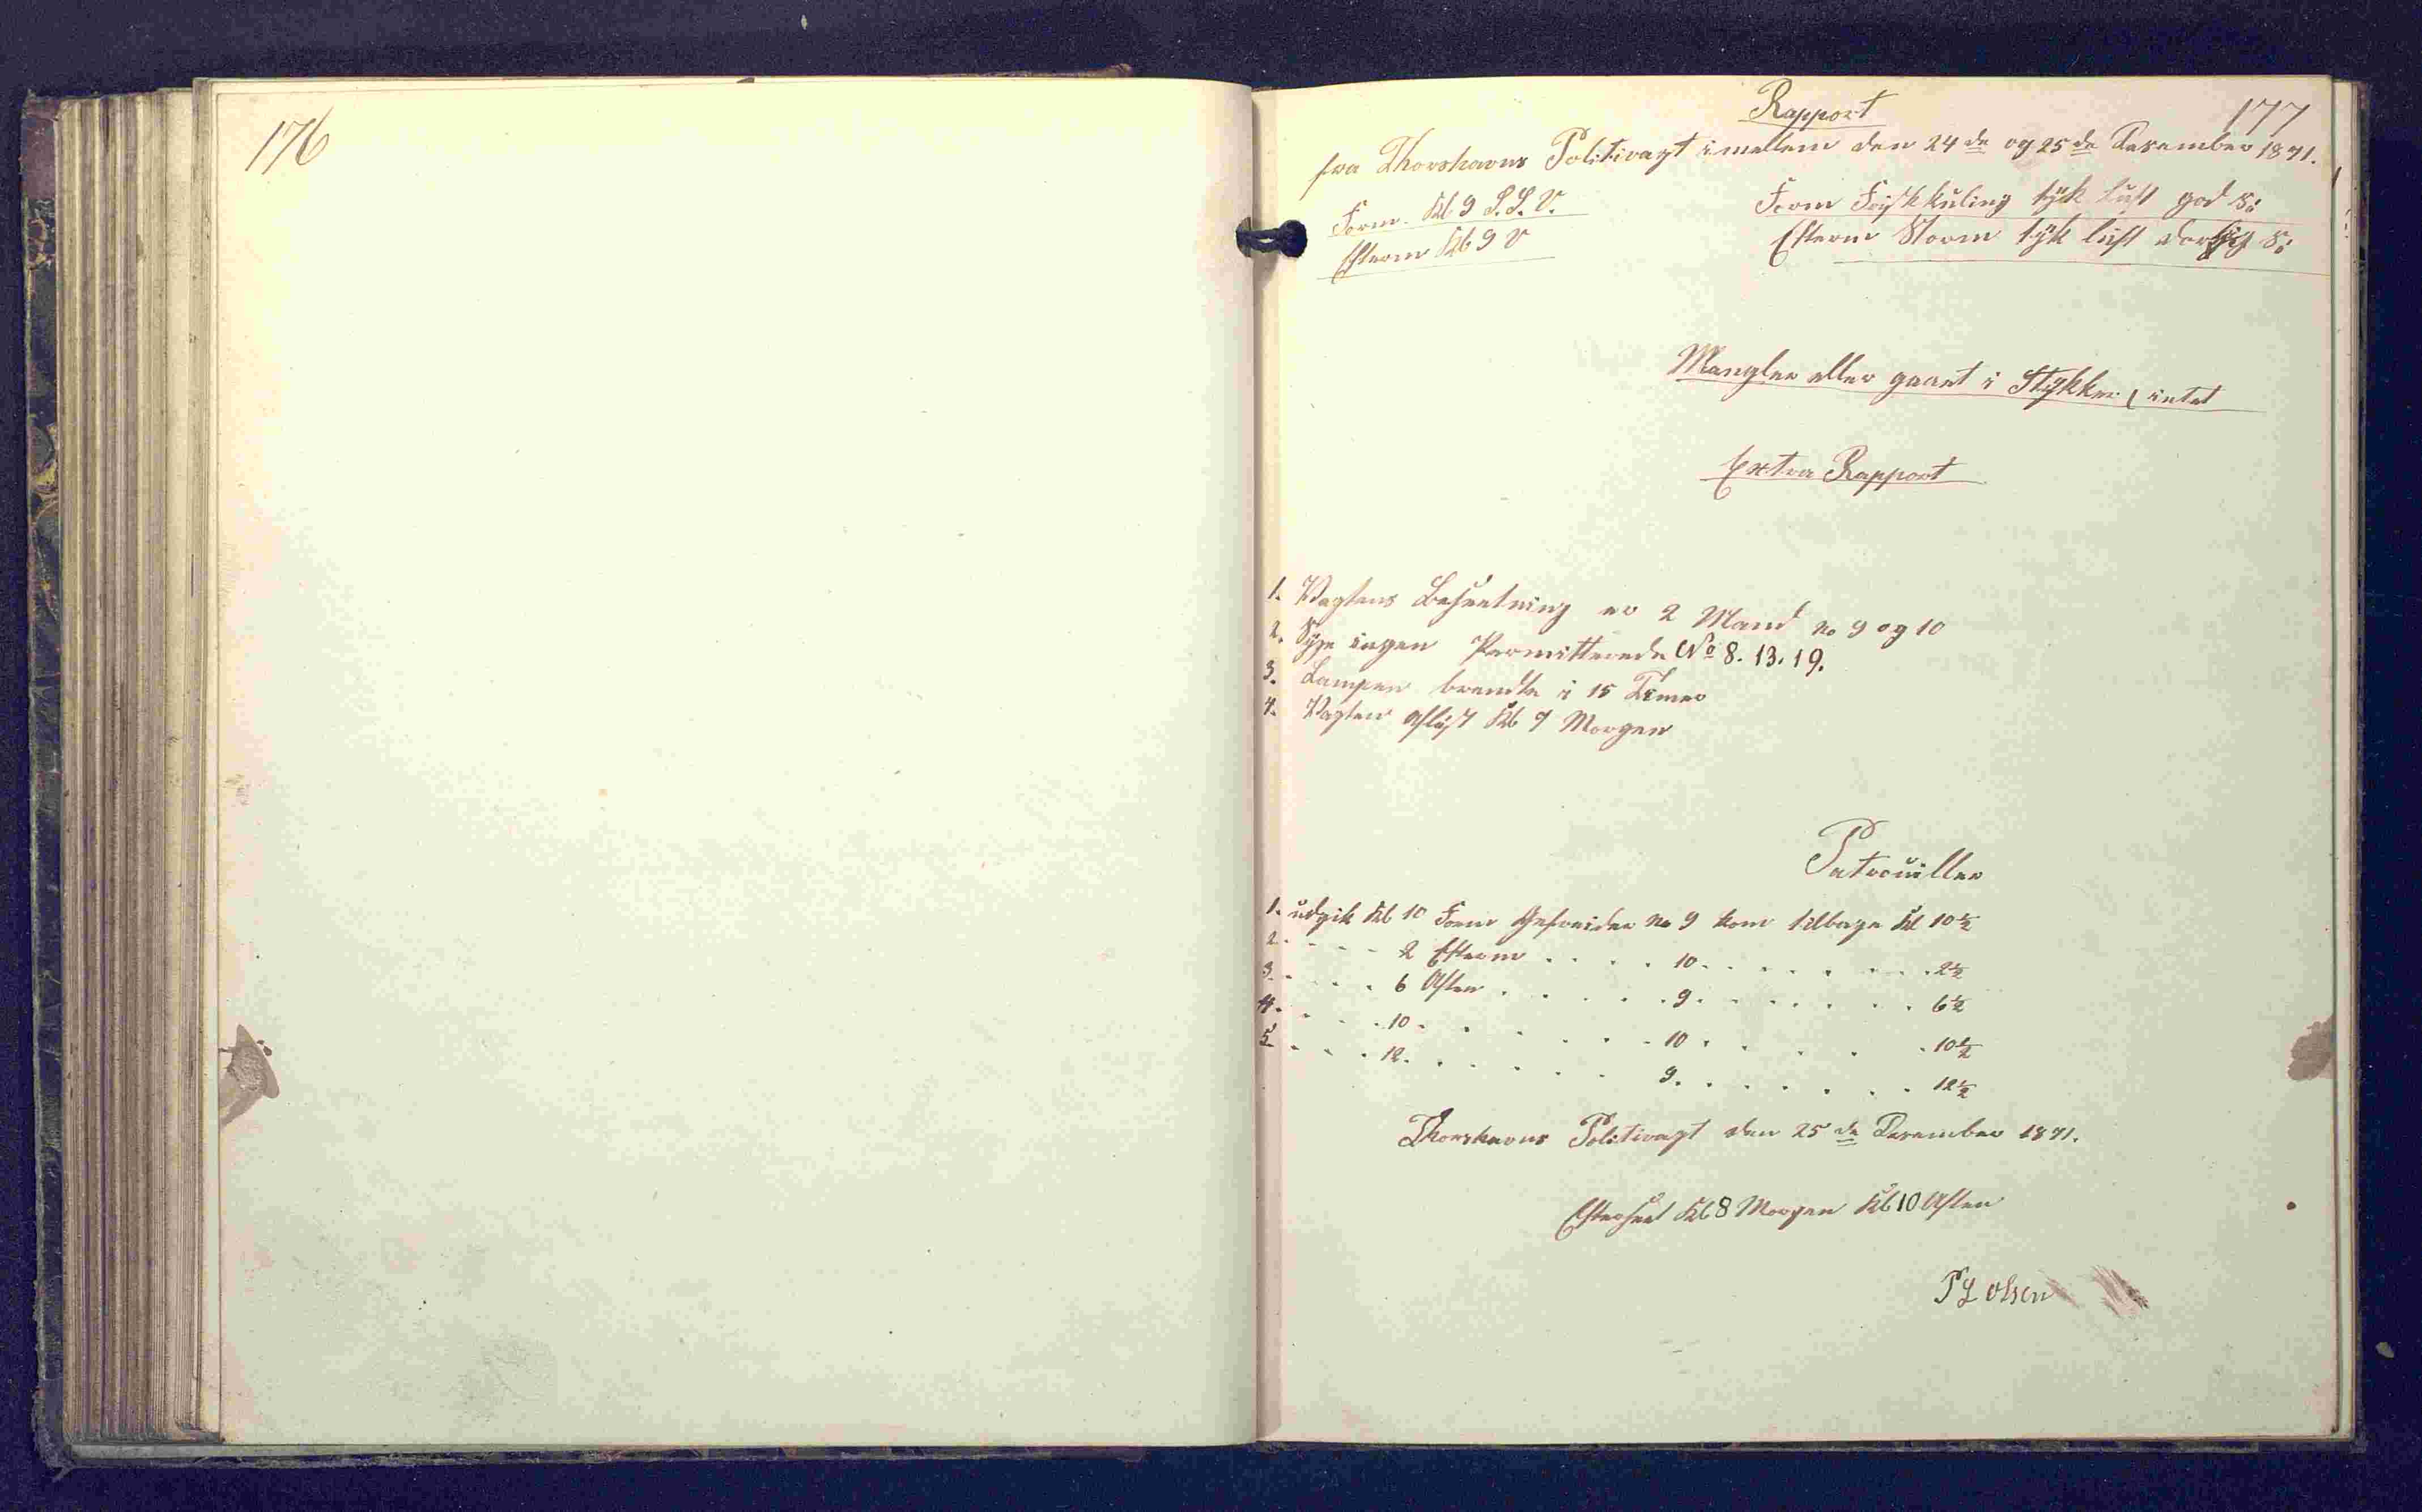 176
177
Rapport
fra Thorshavns Politivagt imellem den 24de og 25de Desember 1871.
Form. Kl 9 S.S.V.
Efterm Kl 9 V
Form Friskkuling tÿk luft god S:
Efterm Storm tÿk luft daarlig S:
Mangler eller gaaet i Stÿkker, intet
Extra Rapport
1. Vagtens Besætning er 2 Mand No 9 og 10
2. Sÿge ingen Permitterede No 8. 13. 19.
3. Lampen brendte i 15 Timer
4. Vagten aflöst Kl 9 Morgen
Patrouiller
1. udgik Kl 10 Form Gefreider No 9 kom tilbage Kl 10½
2. - - - - 2 Efterm . . . . 10 . . . . . . . . 2½
3. - . . . 6 Aften . . . . . 9 . . . . . . . 6½
4. - . . 10 . . . . . . 10 . . . . . 10½
5. - . . . 12. . . . . . . 9. . . . . . . 12½
Thorshavns Politivagt den 25de Desember 1871.
Efterseet Kl 8 Morgen Kl 10 Aften
P L Olsen